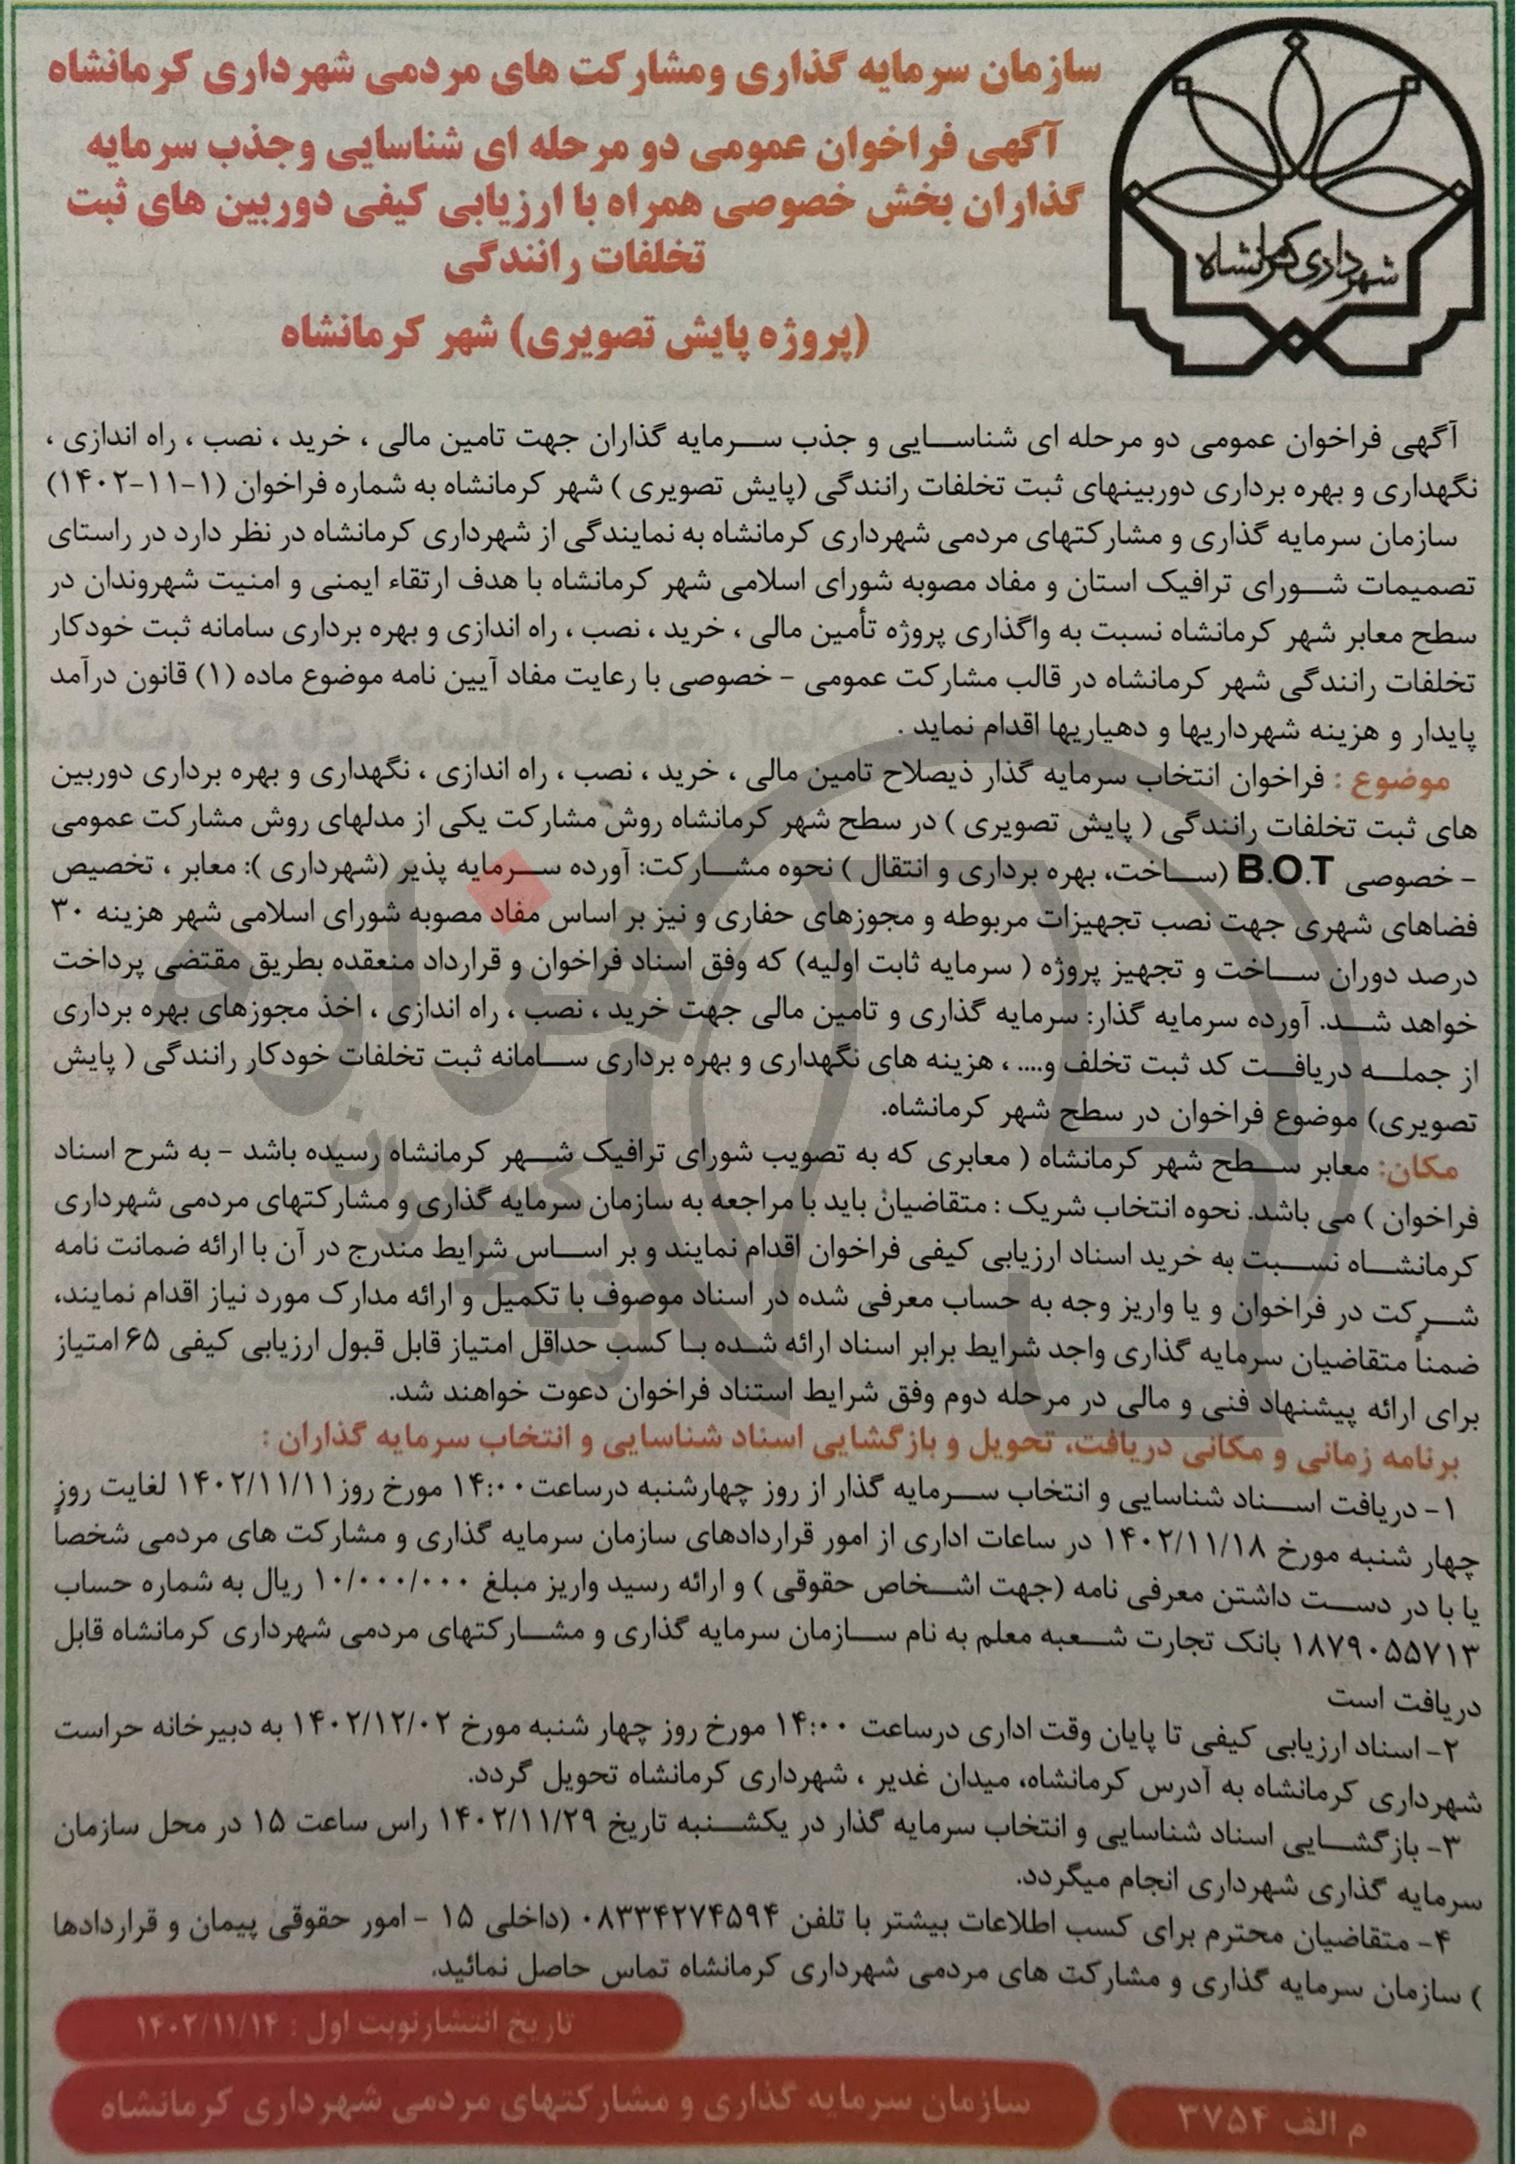 سازمان سرمایه گذاری ومشارکت های مردمی شهرداری کرمانشاه
آگهی فراخوان عمومی دو مرحله ای شناسایی وجذب سرمایه
گذاران بخش خصوصی همراه با ارزیابی کیفی دوربین های ثبت
تخلفات رانندگی
(پروژه پایش تصویری) شهر کرمانشاه
شهرداری کرمانشاه
آگهی فراخوان عمومی دو مرحله ای شناسایی و جذب سرمایه گذاران جهت تامین مالی ، خرید ، نصب ، راه اندازی ،
نگهداری و بهره برداری دوربینهای ثبت تخلفات رانندگی (پایش تصویری ) شهر کرمانشاه به شماره فراخوان (۱-۱۱-۱۴۰۲)
سازمان سرمایه گذاری و مشارکتهای مردمی شهرداری کرمانشاه به نمایندگی از شهرداری کرمانشاه در نظر دارد در راستای
تصمیمات شورای ترافیک استان و مفاد مصوبه شورای اسلامی شهر کرمانشاه با هدف ارتقاء ایمنی و امنیت شهروندان در
سطح معابر شهر کرمانشاه نسبت به واگذاری پروژه تأمین مالی ، خرید ، نصب ، راه اندازی و بهره برداری سامانه ثبت خودکار
تخلفات رانندگی شهر کرمانشاه در قالب مشارکت عمومی - خصوصی با رعایت مفاد آیین نامه موضوع ماده (۱) قانون درآمد
پایدار و هزینه شهرداریها و دهیاریها اقدام نماید .
موضوع : فراخوان انتخاب سرمایه گذار ذیصلاح تامین مالی ، خرید ، نصب ، راه اندازی ، نگهداری و بهره برداری دوربین
های ثبت تخلفات رانندگی ( پایش تصویری ) در سطح شهر کرمانشاه روش مشارکت یکی از مدلهای روش مشارکت عمومی
- خصوصی B.O.T (ساخت، بهره برداری و انتقال ) نحوه مشارکت: آورده سرمایه پذیر (شهرداری ): معابر ، تخصیص
فضاهای شهری جهت نصب تجهیزات مربوطه و مجوزهای حفاری و نیز بر اساس مفاد مصوبه شورای اسلامی شهر هزینه ۳۰
درصد دوران ساخت و تجهیز پروژه ( سرمایه ثابت اولیه) که وفق اسناد فراخوان و قرارداد منعقده بطریق مقتضی پرداخت
خواهد شد. آورده سرمایه گذار: سرمایه گذاری و تامین مالی جهت خرید ، نصب ، راه اندازی ، اخذ مجوزهای بهره برداری
از جمله دریافت کد ثبت تخلف و.... ، هزینه های نگهداری و بهره برداری سامانه ثبت تخلفات خودکار رانندگی ( پایش
تصویری) موضوع فراخوان در سطح شهر کرمانشاه.
مکان: معابر سطح شهر کرمانشاه ( معابری که به تصویب شورای ترافیک شهر کرمانشاه رسیده باشد - به شرح اسناد
فراخوان ) می باشد. نحوه انتخاب شریک : متقاضیان باید با مراجعه به سازمان سرمایه گذاری و مشارکتهای مردمی شهرداری
کرمانشاه نسبت به خرید اسناد ارزیابی کیفی فراخوان اقدام نمایند و بر اساس شرایط مندرج در آن با ارائه ضمانت نامه
شرکت در فراخوان و یا واریز وجه به حساب معرفی شده در اسناد موصوف با تکمیل و ارائه مدارک مورد نیاز اقدام نمایند،
ضمناً متقاضیان سرمایه گذاری واجد شرایط برابر اسناد ارائه شده با کسب حداقل امتیاز قابل قبول ارزیابی کیفی ۶۵ امتیاز
برای ارائه پیشنهاد فنی و مالی در مرحله دوم وفق شرایط استناد فراخوان دعوت خواهند شد.
برنامه زمانی و مکانی دریافت، تحویل و بازگشایی اسناد شناسایی و انتخاب سرمایه گذاران :
۱- دریافت اسناد شناسایی و انتخاب سرمایه گذار از روز چهارشنبه درساعت۱۴:۰۰ مورخ روز۱۴۰۲/۱۱/۱۱ لغایت روز
چهار شنبه مورخ ۱۴۰۲/۱۱/۱۸ در ساعات اداری از امور قراردادهای سازمان سرمایه گذاری و مشارکت های مردمی شخصاً
یا با در دست داشتن معرفی نامه (جهت اشخاص حقوقی ) و ارائه رسید واریز مبلغ ۱۰/۰۰۰/۰۰۰ ریال به شماره حساب
۱۸۷۹۰۵۵۷۱۳ بانک تجارت شعبه معلم به نام سازمان سرمایه گذاری و مشارکتهای مردمی شهرداری کرمانشاه قابل
دریافت است
۲- اسناد ارزیابی کیفی تا پایان وقت اداری درساعت ۱۴:۰۰ مورخ روز چهار شنبه مورخ ۱۴۰۲/۱۲/۰۲ به دبیرخانه حراست
شهرداری کرمانشاه به آدرس کرمانشاه، میدان غدیر ، شهرداری کرمانشاه تحویل گردد.
۳- بازگشایی اسناد شناسایی و انتخاب سرمایه گذار در یکشنبه تاریخ ۱۴۰۲/۱۱/۲۹ راس ساعت ۱۵ در محل سازمان
سرمایه گذاری شهرداری انجام میگردد.
۴- متقاضیان محترم برای کسب اطلاعات بیشتر با تلفن ۰۸۳۳۴۲۷۴۵۹۴ (داخلی ۱۵ - امور حقوقی پیمان و قراردادها
) سازمان سرمایه گذاری و مشارکت های مردمی شهرداری کرمانشاه تماس حاصل نمائید.
تاریخ انتشارنوبت اول : ۱۴۰۲/۱۱/۱۴
سازمان سرمایه گذاری و مشارکتهای مردمی شهرداری کرمانشاه
م الف ۳۷۵۴